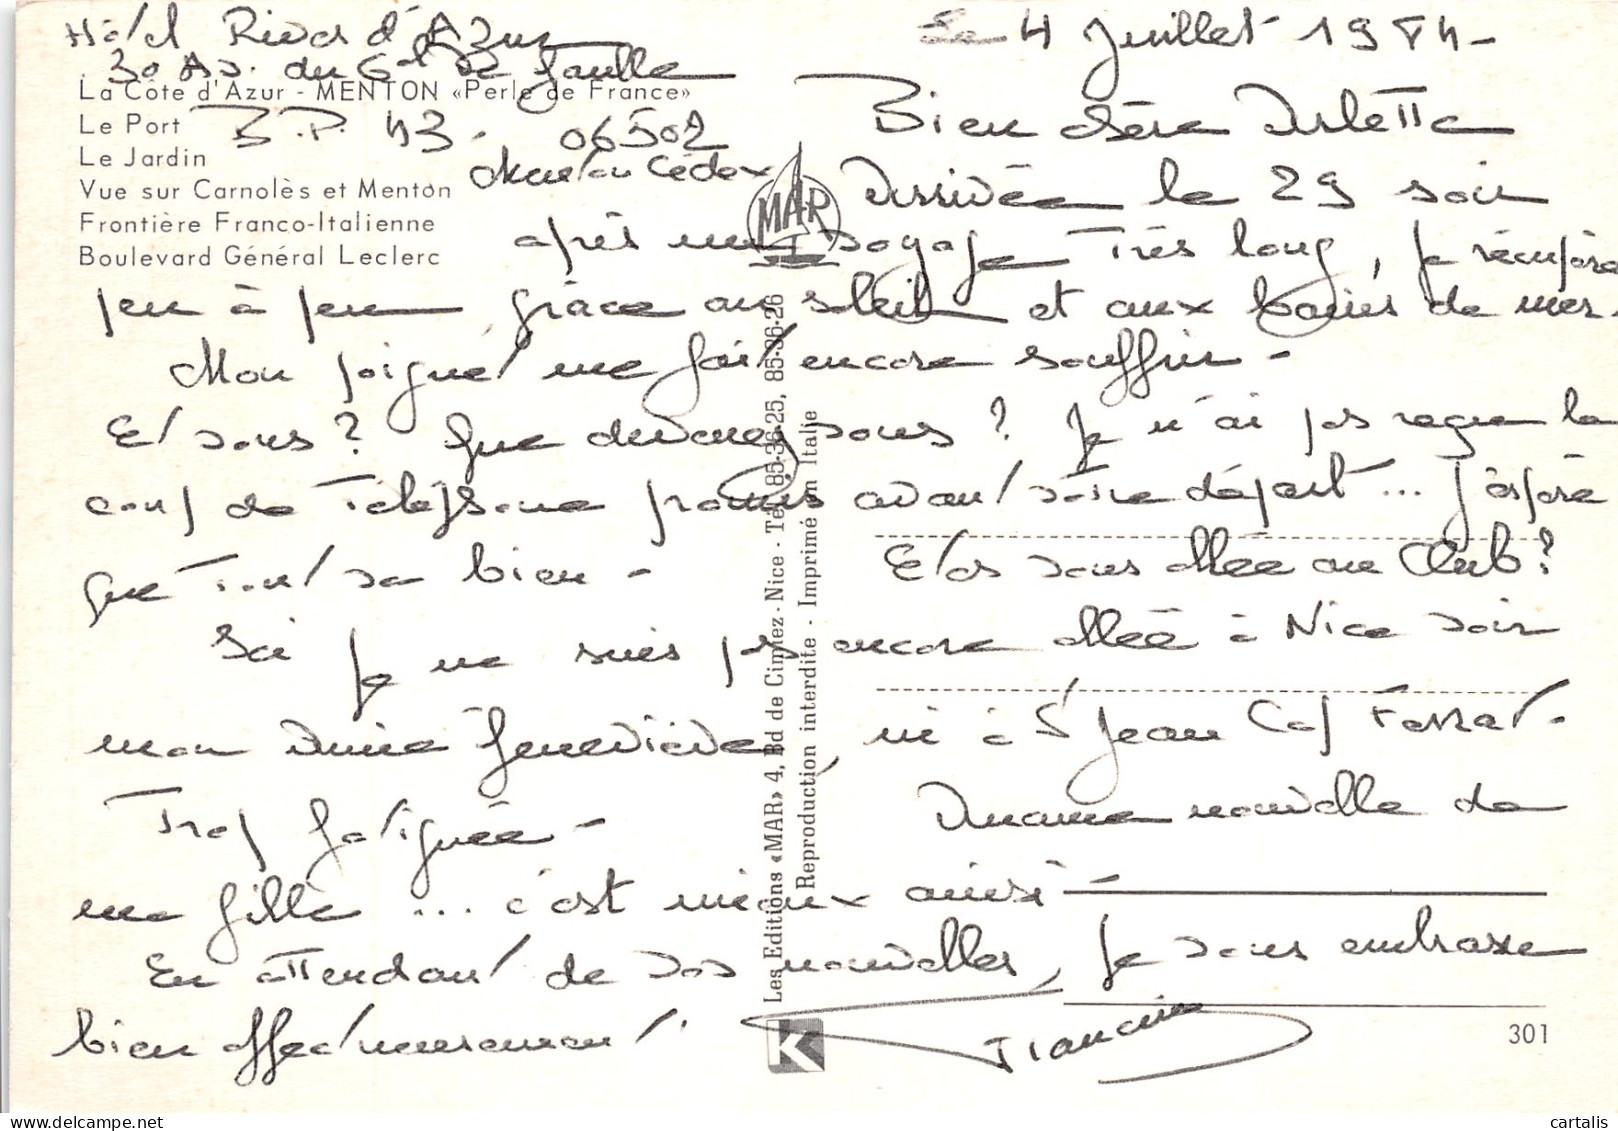 Hôtel Riva d'Azur
30 Av. du Gal de Gaulle
B.P. 43 - 06502
Menton Cédex
La Côte d'Azur - MENTON «Perle de France»
Le Port
Le Jardin
Vue sur Carnolès et Menton
Frontière Franco-Italienne
Boulevard Général Leclerc
MAR
Le 4 Juillet 1984 -
Bien chère Arlette
Arrivée le 29 soir
après un voyage très long, je récupère
peu à peu grâce au soleil et aux bains de mer.
Mon poignet me fait encore souffrir -
Et vous ? Que devenez vous ? Je n'ai pas reçu le
coup de téléphone promis avant votre départ ... J'espère
que tout va bien - Etes vous allée au Club ?
Ici je ne suis pas encore allée à Nice voir
mon amie Geneviève, ni à St Jean Cap Ferrat -
Trop fatiguée - Aucune nouvelle de
ma fille ... c'est mieux ainsi -
En attendant de vos nouvelles, je vous embrasse
bien affectueusement.
Francine
Les Editions «MAR» 4, Bd de Cimiez - Nice - Tél. 85-36-25, 85-36-26
Reproduction interdite - Imprimé en Italie
K
301
cartalis
www.delcampe.net